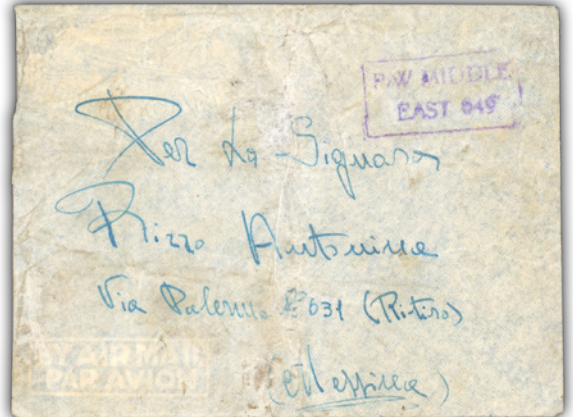 P/W MIDDLE
EAST 949
Per La Signora
Rizzo Antonina
Via Palermo N° 631 (Ritiro)
(Messina)
BY AIR MAIL
PAR AVION